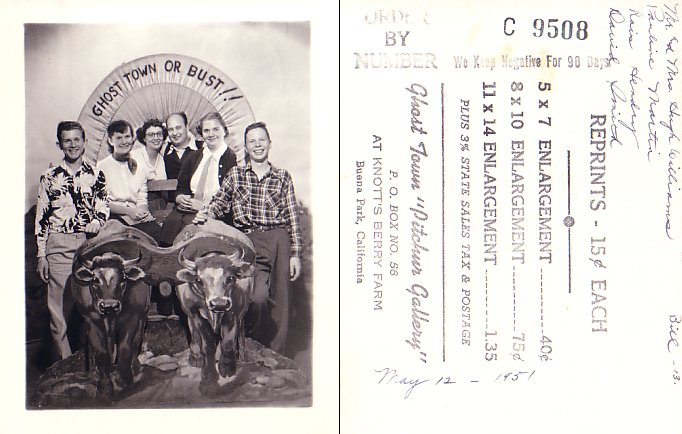 GHOST TOWN OR BUST!!
ORDER
BY
NUMBER
C 9508
We Keep Negative For 90 Days
REPRINTS - 15¢ EACH
5 x 7 ENLARGEMENT ........... 40¢
8 x 10 ENLARGEMENT ........... 75¢
11 x 14 ENLARGEMENT ......... 1.35
PLUS 3% STATE SALES TAX & POSTAGE
Ghost Town "Pitchur Gallery"
P. O. BOX NO. 56
AT KNOTT'S BERRY FARM
Buena Park, California
Mr. & Mrs. Hugh Williams
Pauline Martin
Hendry
David
Bill - 13.
May 12 - 1951